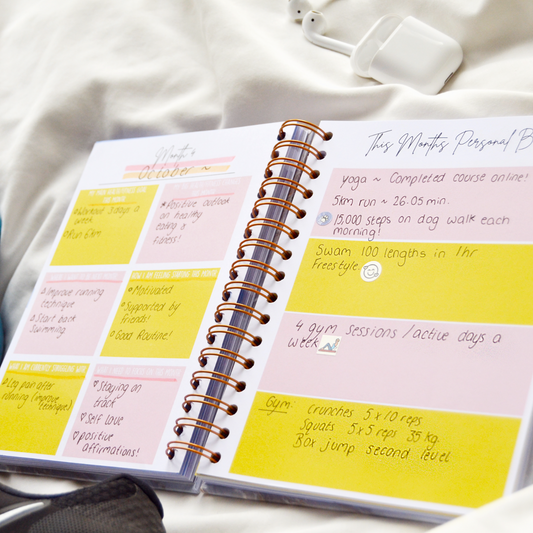 Month of
October ~
Workout 3 days a
week
Run 6km
Positive outlook
on healthy
eating &
fitness!
HOW I AM FEELING STARTING THIS MONTH
Improve running
technique
Start back
swimming
Motivated
Supported by
friends!
Good Routine!
WHAT I AM CURRENTLY STRUGGLING WITH
Leg pain after
running (improve
technique)
Staying on
track
Self love
positive
affirmations!
This Months Personal B
Yoga ~ Completed course online!
5km run ~ 26.05 min.
15,000 steps on dog walk each
morning!
Swam 100 lengths in 1hr
Freestyle
4 gym sessions / active days a
week
Gym: crunches 5x10 reps
Squats 5x5 reps 35kg
Box jump second level